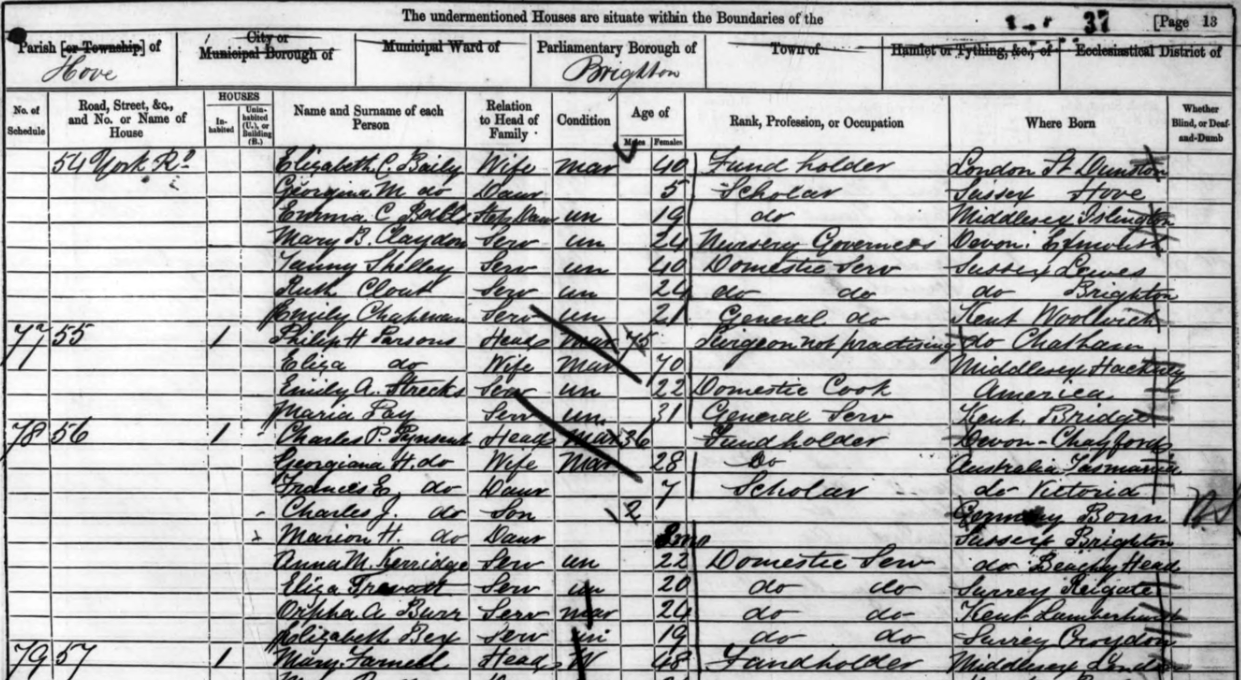 The undermentioned Houses are situate within the Boundaries of the
37 [Page 13
Parish [or Township] of City or Municipal Borough of Municipal Ward of Parliamentary Borough of Town of Hamlet or Tything, &c., of Ecclesiastical District of
Hove Brighton
No. of Schedule Road, Street, &c., and No. or Name of House HOUSES Inhabited Uninhabited (U.), or Building (B.) Name and Surname of each Person Relation to Head of Family Condition Age of Males Females Rank, Profession, or Occupation Where Born Whether Blind, or Deaf-and-Dumb
54 York Rd Elizabeth C. Baily Wife Mar 40 Fund holder London St Dunston
Georgina M. do Daur 5 Scholar Sussex Hove
Emma C Step Daur un 19 do Middlesex Islington
Mary B. Claydon Serv un 24 Nursery Governess Devon
Fanny Shelley Serv un 40 Domestic Serv Sussex Lewes
Ruth Serv un 24 do do do Brighton
Emily Chapman Serv un 21 General do Kent Woolwich
77 55 1 Philip H Parsons Head Mar 75 Surgeon not practising do Chatham
Eliza do Wife Mar 70 Middlesex Hackney
Emily A. Serv un 22 Domestic Cook America
Maria Fay Serv un 31 General Serv Kent Bridge
78 56 1 Charles P. Pynsent Head Mar 36 Fundholder Devon
Georgiana H. do Wife Mar 28 Do Australia Tasmania
Frances E. do Daur 7 Scholar do Victoria
Charles J. do Son 2 Germany Bonn
Marion H. do Daur Sussex Brighton
Anna M. Kerridge Serv un 22 Domestic Serv do Beachy Head
Eliza Serv un 20 do do Surrey Reigate
Orpha A Burr Serv Mar 24 do do Kent Lamberhurst
Elizabeth Bex Serv un 19 do do Surrey Croydon
79 57 1 Mary Farnell Head W 48 Fundholder Middlesex London